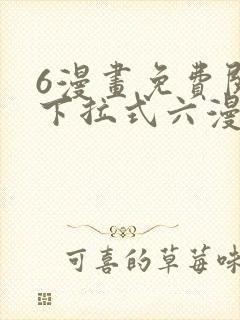 6漫畫免費閱
下拉式六漫
可喜的草莓味